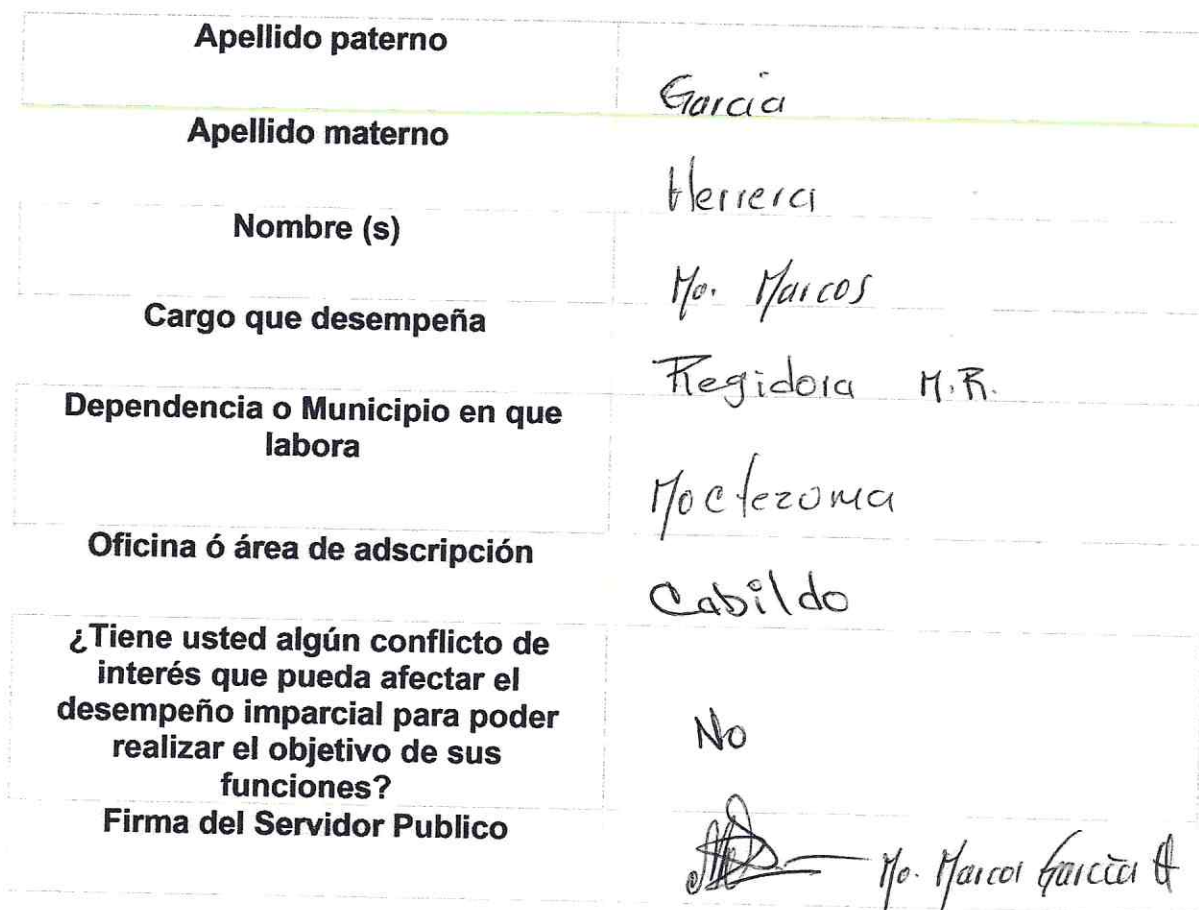 Apellido paterno
Garcia
Apellido materno
Herrera
Nombre (s)
Ma. Marcos
Cargo que desempeña
Regidora M.R.
Dependencia o Municipio en que
labora
Moctezuma
Oficina ó área de adscripción
Cabildo
¿Tiene usted algún conflicto de
interés que pueda afectar el
desempeño imparcial para poder
realizar el objetivo de sus
funciones?
No
Firma del Servidor Publico
Ma. Marcos García H